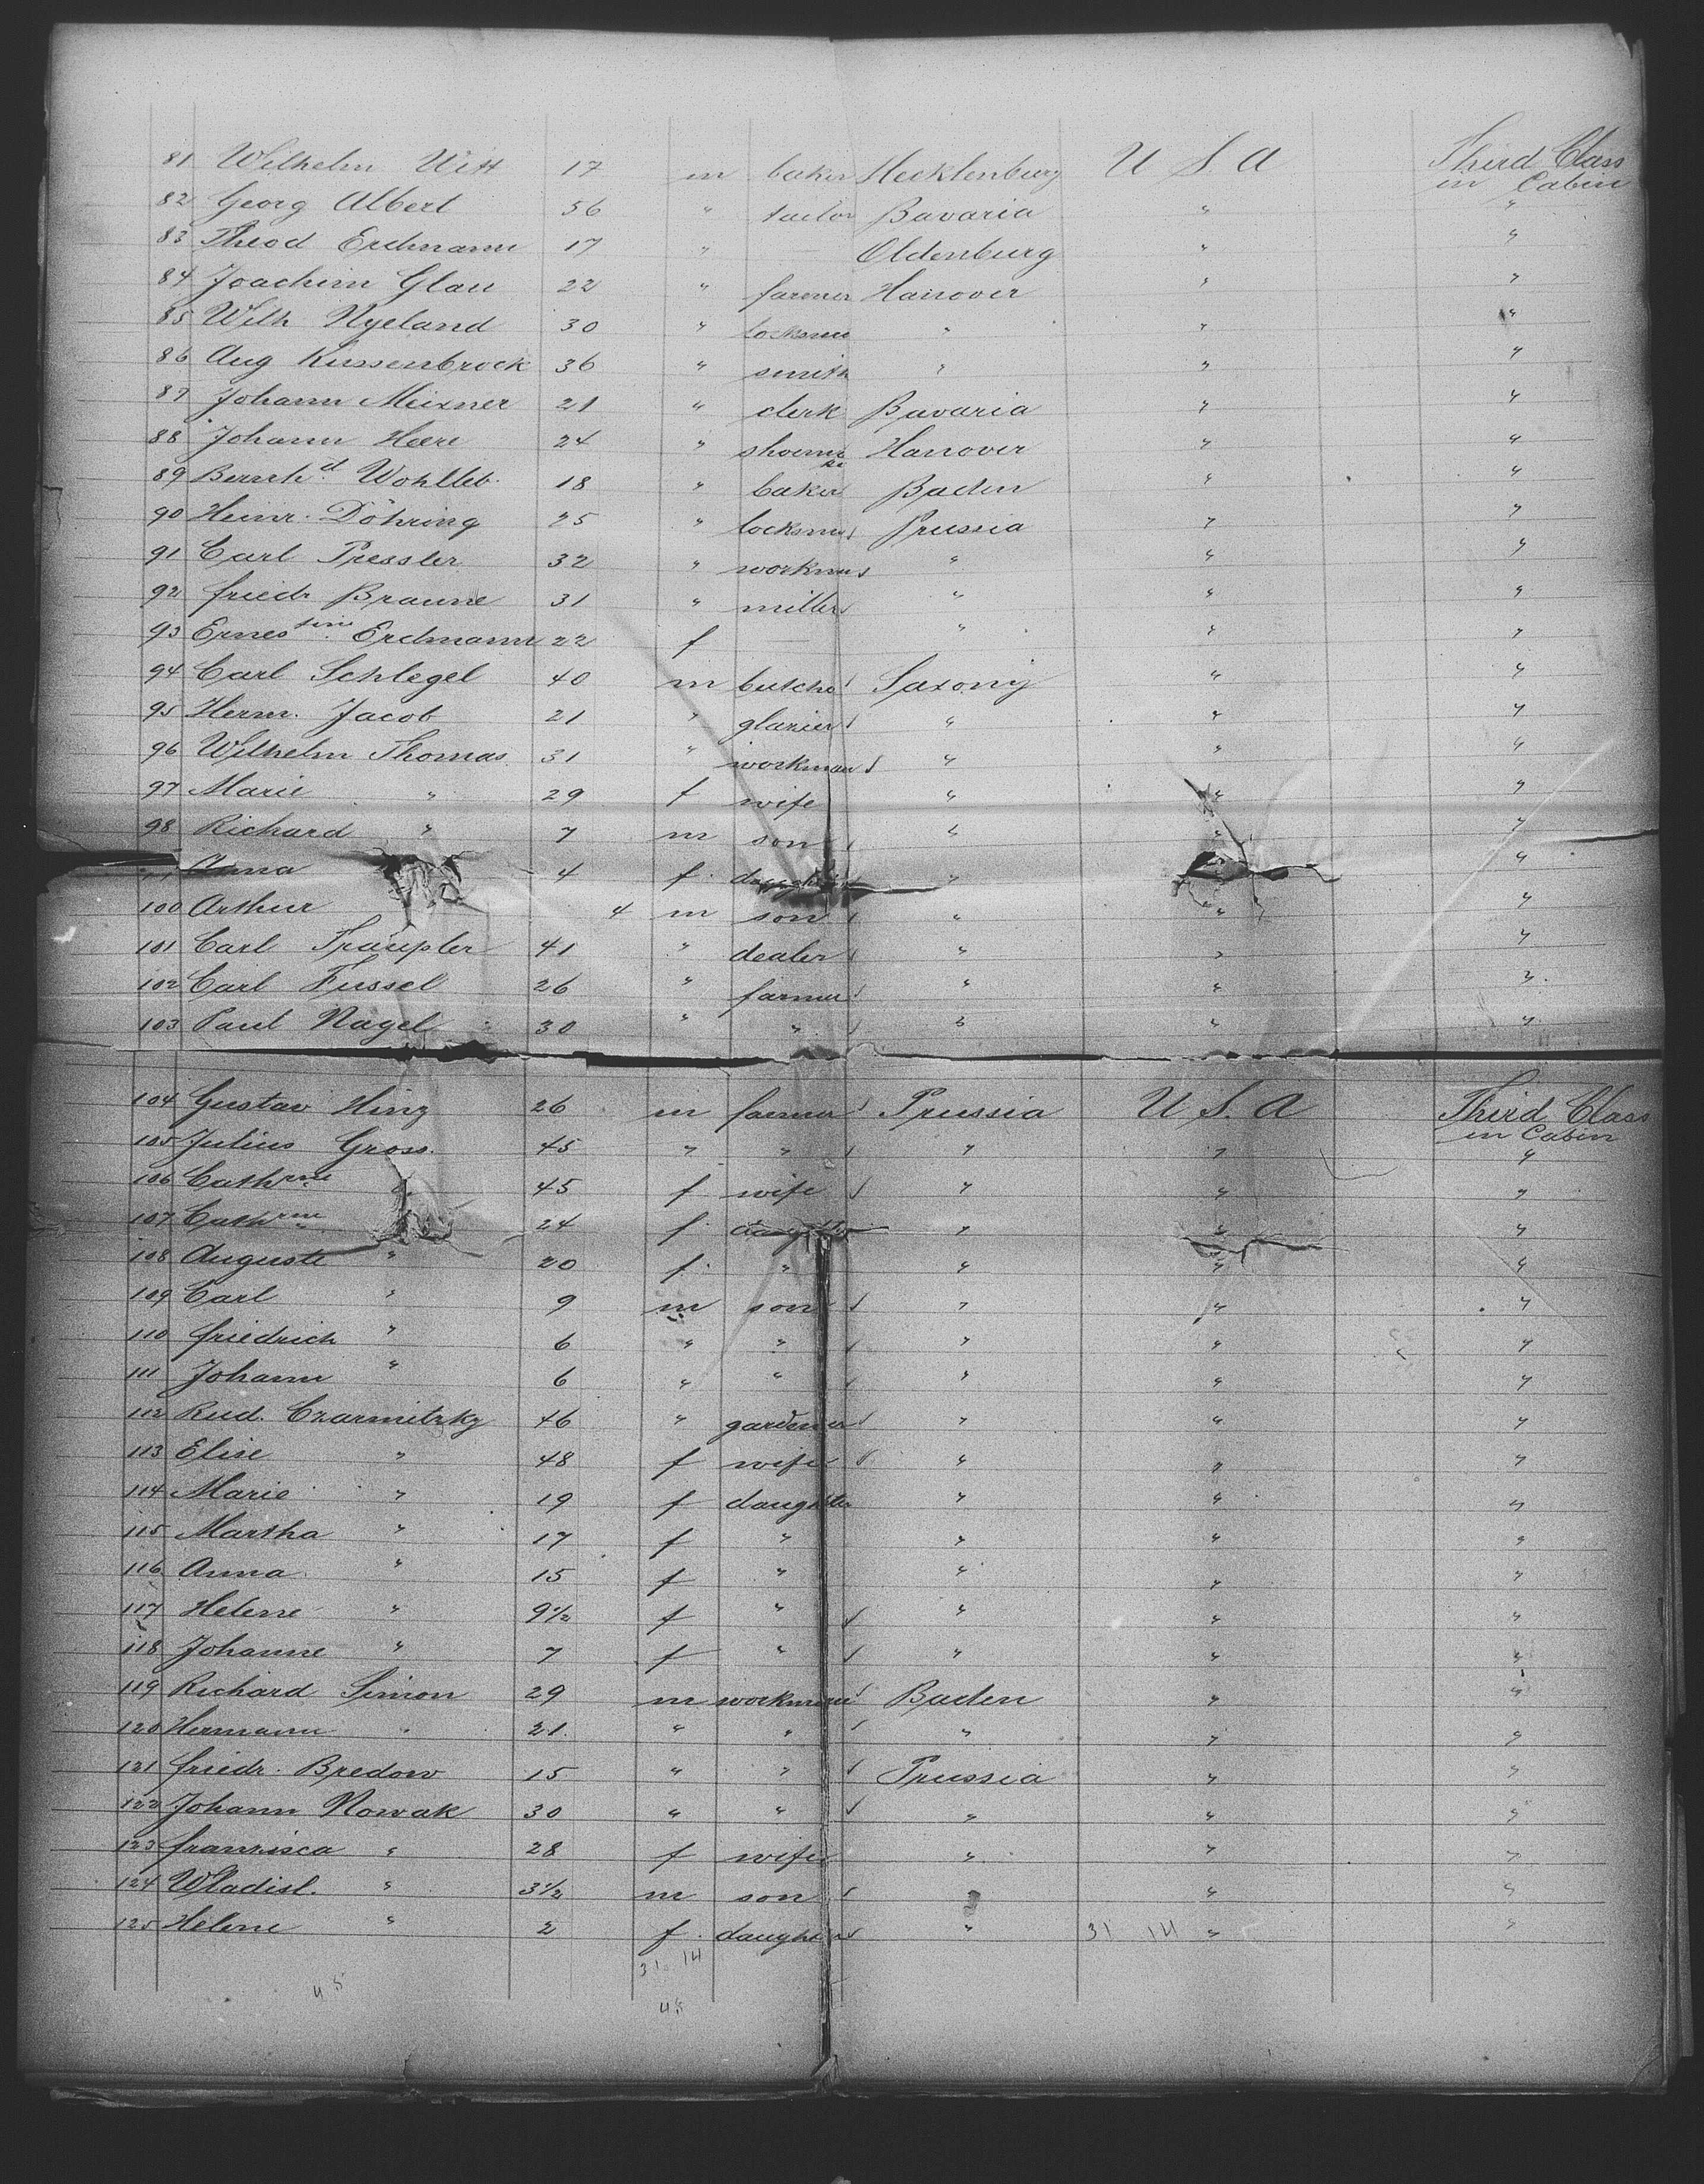 81 Wilhelm Witt 17 m baker Mecklenburg U S. A Third Class in Cabin
82 Georg Albert 56 " tailor Bavaria " "
83 Theod Erdmann 17 " Oldenburg " "
84 Joachim Glau 22 " farmer Hanover " "
85 Wilh Nyeland 30 " " " "
86 Aug Kussenbrock 36 " smith " " "
87 Johann Meixner 21 " clerk Bavaria " "
88 Johann 24 " shoemake Hanover " "
89 Bernhd Wohlleb. 18 " baker Baden " "
90 Heinr. Döhring 25 " locksmi Prussia " "
91 Carl Pressler 32 " workman " " "
92 friedr Braune 31 " miller " " "
93 Ernestine Erdmann 22 f " " "
94 Carl Schlegel 40 m butche Saxony " "
95 Herm. Jacob 21 " glazier " " "
96 Wilhelm Thomas 31 " workman " " "
97 Marie " 29 f wife " " "
98 Richard " 7 m son " " "
Anna 4 f. daughter " "
100 Arthur " 4 m son " " "
101 Carl Traupler 41 " dealer " " "
102 Carl Fussel 26 " farmer " " "
103 Paul Nagel 30 " " " " "
104 Gustav Hinz 26 m farmer Prussia U S. A Third Class in Cabin
105 Julius Gross. 45 " " " " "
106 Cathrine " 45 f wife " " "
107 Cathrine 24 f. daughter " " "
108 Auguste " 20 f. " " " "
109 Carl " 9 m son " " "
110 friedrich " 6 " " " " "
111 Johann " 6 " " " " "
112 Rud. Czarnitzky 46 " gardener " " "
113 Elise " 48 f wife " " "
114 Marie " 19 f daughter " " "
115 Martha " 17 f " " " "
116 Anna " 15 f " " " "
117 Helene " 9½ f " " " "
118 Johanne " 7 f " " " "
119 Richard Simon 29 m workman Baden " "
120 Hermann " 21. " " " " "
121 friedr. Bredow 15 " " Prussia " "
122 Johann Nowak 30 " " " " "
123 franzisca " 28 f wife " " "
124 Wladisl. " 3½ m son " " "
125 Helene " 2 f. daughter " 31 14 " "
31 14
45 45